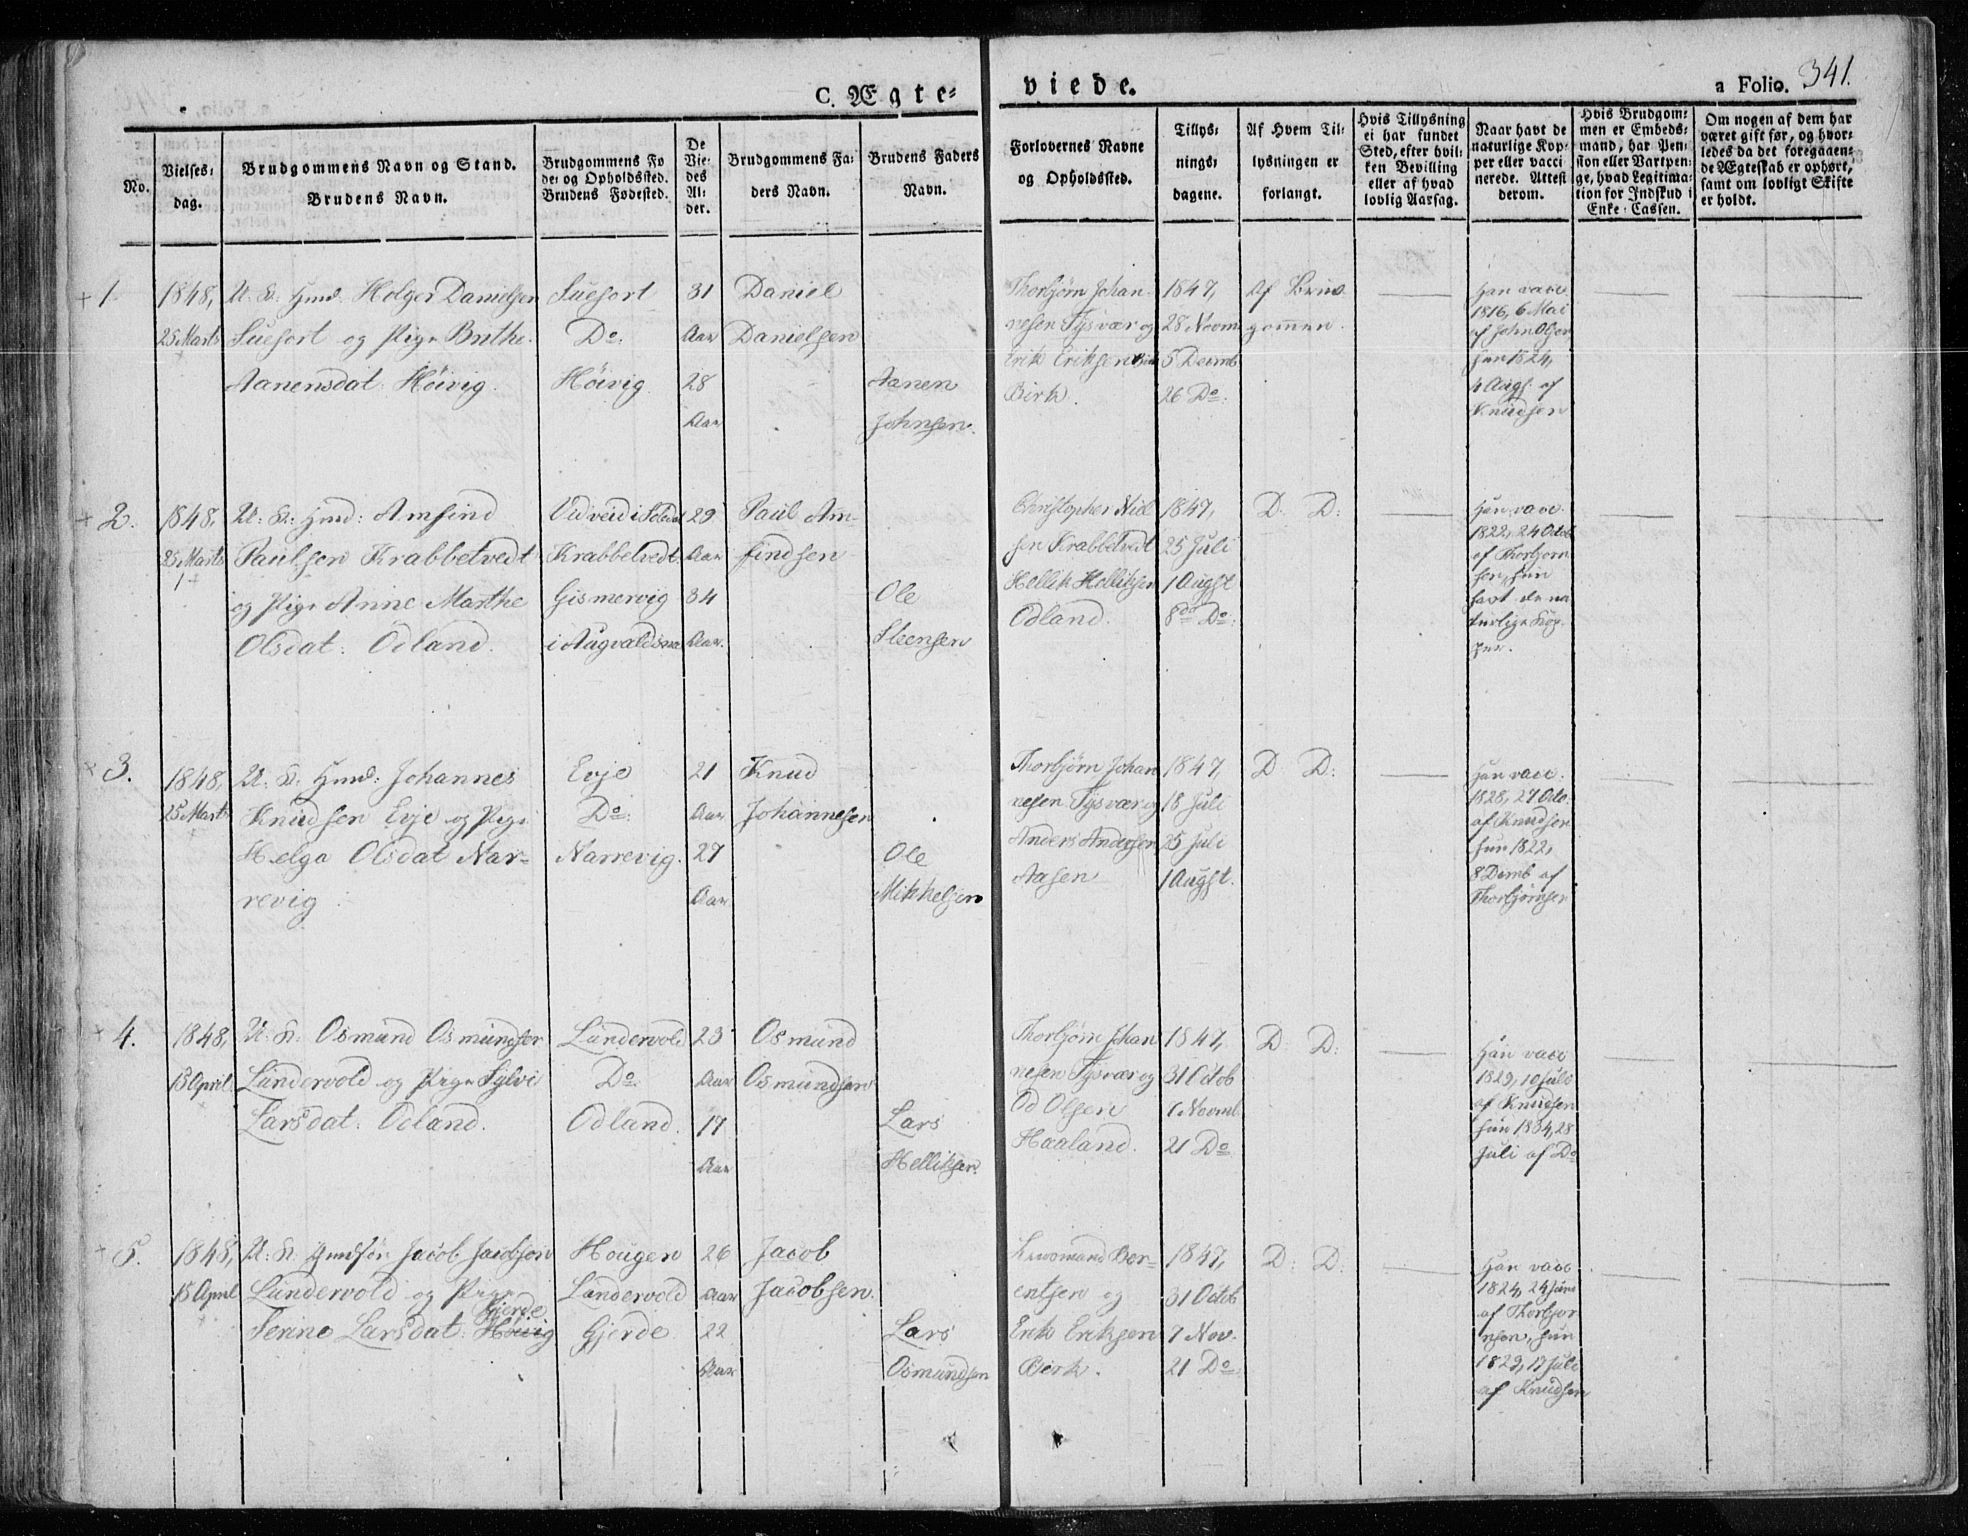 C. Ægte= viede. a Folio. 341.
No.
Vielses=
dag.
Brudgommens Navn og Stand.
Brudens Navn.
Brudgommens Fø
de= og Opholdssted.
Brudens Fødested.
De
Vie=
des
Al=
der.
Brudgommens Fa=
ders Navn.
Brudens Faders
Navn.
Forlovernes Navne
og Opholdssted.
Tillys=
nings=
dagene.
Af Hvem Til=
lysningen er
forlangt.
Hvis Tillysning
ei har fundet
Sted, efter hvil=
ken Bevilling
eller af hvad
lovlig Aarsag.
Naar havt de
naturlige Kop=
per eller vacci
nerede. Attest
derom.
Hvis Brudgom=
men er Embeds=
mand, har Pen=
sion eller Vartpen=
ge, hvad Legitima=
tion for Indskud i
Enke=Cassen.
Om nogen af dem har
været gift før, og hvor=
ledes da det foregaaen=
de Ægteskab er ophørt,
samt om lovligt Skifte
er holdt.
+ 1
1848,
25 Marts
U. K. Gmd. Holger Danielsen
Suefort og Pige Brithe
Aanensdat: Höivig.
Suefort
Do:
Höivig
31
Aar
28
Aar
Daniel
Danielsen
Aanen
Johnsen.
Thorbjørn Johan
nesen Tysvær og
Erik Eriksen
Birk.
1847,
28 Novm
5 Decmb
26 Do:
Af Brud
gommen.
Han vacc
1816, 6 Mai
af John Olsen
hun 1824,
4 Augs. af
Knudsen
+ 2.
1848,
25 Marts
U: K: Gmd: Arnfind
Paulsen Krabbetvedt
og Pige Anne Marthe
Olsdat: Odland.
Krabbetvedt
Gismervig
i Augvaldsnæs
29
Aar
34
Aar.
Paul Arn-
findsen
Ole
Steensen
Christopher Niel
sen Krabbetvedt
Hellik Helliksen
Odland.
1847,
25 Juli
1 Augst
8de Do:
D. D:
Han vacc.
1822, 24 Octob
af Thorbjørn
sen, hun
havt de na
turlige Kop
per.
+ 3.
1848,
25 Marts
U. K. Gmd: Johannes
Knudsen Evje og Pige
Helga Olsdat Nar-
revig
Evje
Do:
Narrevig.
21
Aar
27
Aar
Knud
Johannesen
Ole
Mikkelsen
Thorbjørn Johan
nesen Tysvær og
Anders Andersen
Aasen
1847,
18 Juli
25 Juli
1 Augst.
D D:
Han vacc.
1828, 27 Octo.
af Knudsen
hun 1822,
8 Decmb af
Thorbjørnsen
+ 4.
1848,
13 April
U. K: Osmund Osmundsen
Lundervold og Pige Sylvi
Larsdat: Odland.
Lundervold
Do
Odland.
23
Aar
17
Aar
Osmund
Osmundsen
Lars
Helliksen.
Thorbjørn Johan
nesen Tysvær og
Od Olsen
Haaland.
1847,
31 Octob
Novmb
21 Do
D D:
Han vacc
1829, 10 Juli
af Knudsen
hun 1834, 28
Juli af Do
+ 5.
1848,
15 April
U: K: Jacob Jacobsen
Lundervold og Pige
Gjerde
Serine Larsdat: Höivig
Hougen
Lundervold
Gjerde
26
Aar
22
Aar
Jacob
Jacobsen.
Lars
Osmundsen
Ber-
entsen og
Erik Eriksen
Birk.
1847,
31 Octob
7 Nov.
21 Do:
D: D:
Han vacc
1824, 24 Juni
af Thorbjør
nsen, hun
1829, 17 Juli
af Knudsen